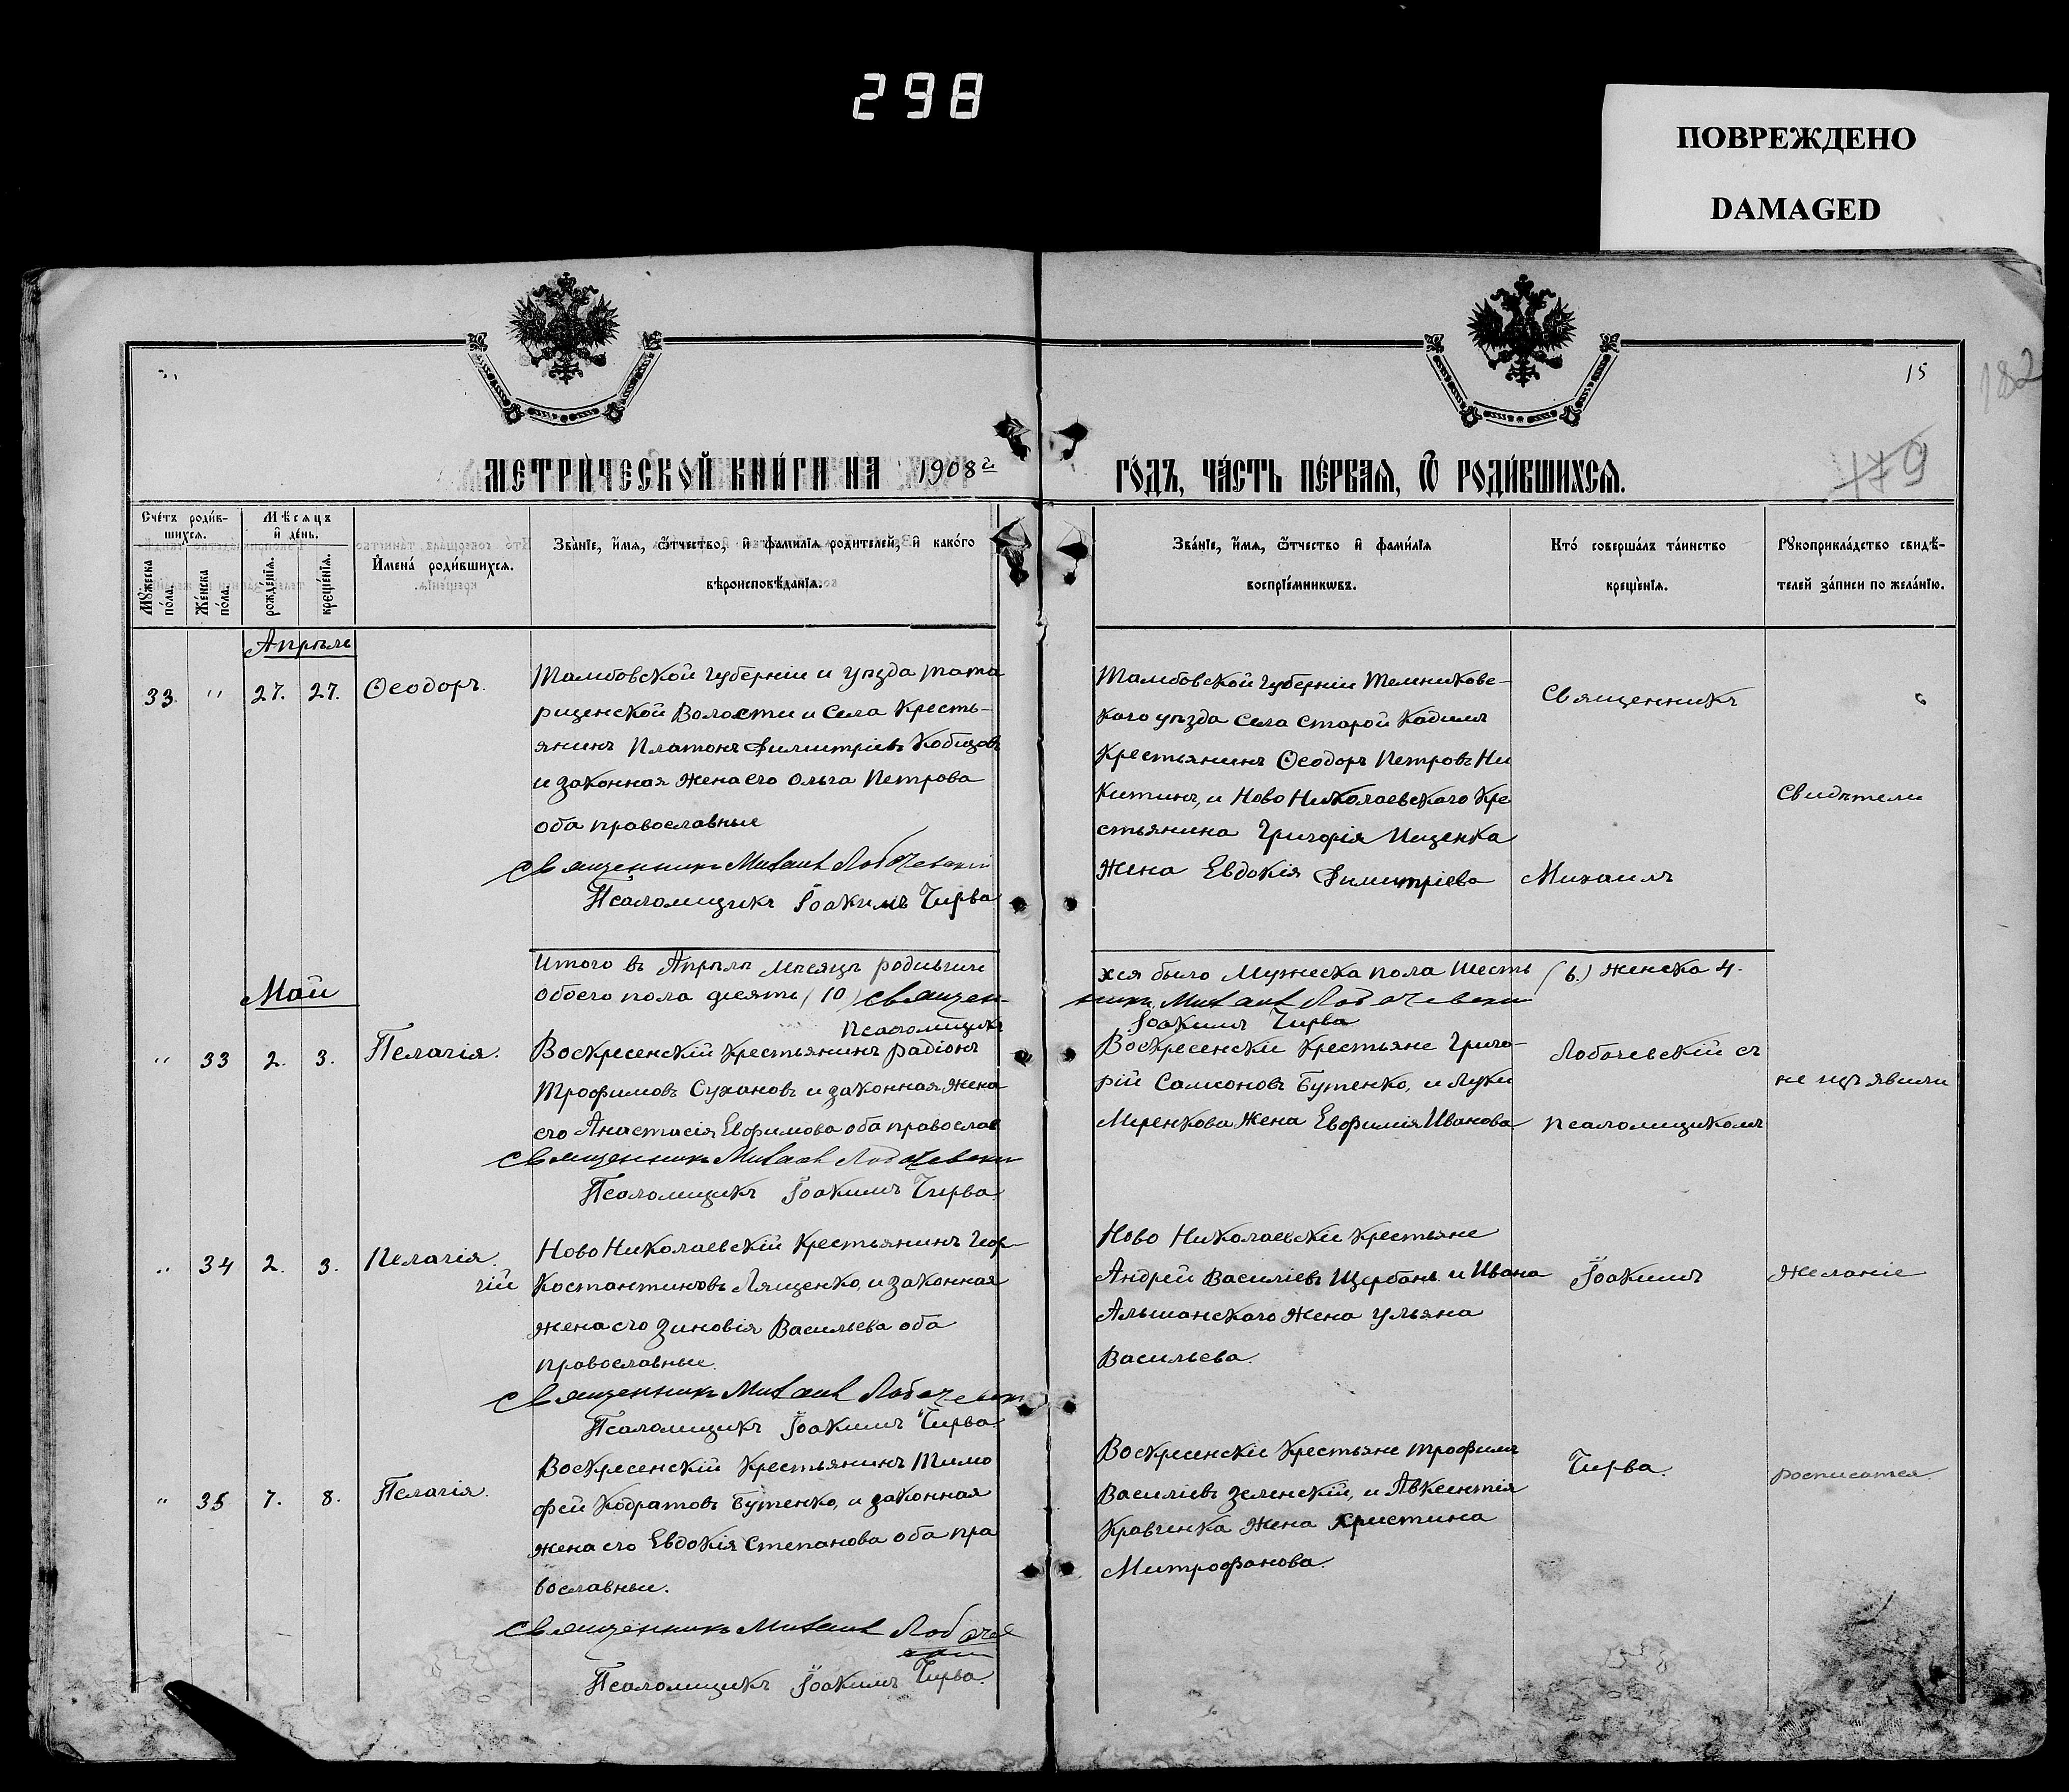 298
ПОВРЕЖДЕНО
DAMAGED
15
182
179
МЕТРИЧЕСКОЙ КНИГИ НА 1908й
ГОДЪ, ЧАСТЬ ПЕРВАЯ, Ѿ РОДИВШИХСЯ.
Счетъ родившихся.
Мѣсяцъ и день.
Мужеска пола.
Женска пола.
рожденія.
крещенія.
Имена родившихся.
Званіе, имя, отчество, и фамилія родителей, и какого
вѣроисповѣданія.
Званіе, имя, отчество и фамилія
воспріемниковъ.
Кто совершалъ таинство
крещенія.
Рукоприкладство свидѣ-
телей записи по желанію.
Апрѣль
33. " 27. 27. Ѳеодоръ.
Тамбовской Губерніи и уѣзда Тата
рщенской Волости и Села Кресть-
янинъ Платонъ Димитріевъ Кобзовъ
и законная жена его Ольга Петрова
оба православные
Священникъ Михаилъ Лобачевскій
Псаломщикъ Іоакимъ Чирва
Тамбовской Губерніи Темниковс-
каго уѣзда Села Старой Кадомъ
Крестьянинъ Ѳеодоръ Петровъ Ни
китинъ, и Ново Николаевскаго Кре
стьянина Григорія Ищенка
жена Евдокія Димитріева
Священникъ
Михаилъ
Свидѣтели
Итого въ Апрѣлѣ мѣсяцѣ родивши
хся было Мужеска пола шесть (6.) женска 4.
обоего пола десять (10) Священ-
никъ Михаилъ Лобачевски
Псаломщикъ
Іоакимъ Чирва
Май
" 33 2. 3. Пелагія.
Воскресенскій Крестьянинъ Радіонъ
Трофимовъ Сухановъ и законная жена
его Анастасія Евфимова оба православ
Священникъ Михаилъ Лобачевски
Псаломщикъ Іоакимъ Чирва.
Воскресенскіе Крестьяне Григо-
рій Самсоновъ Бутенко, и Луки
Меренкова жена Евфимія Иванова
Лобачевскій съ
псаломщикомъ
не изъявили
" 34 2. 3. Пелагія.
Ново Николаевскій Крестьянинъ Геор
гій Костантиновъ Лященко, и законная
жена его Зиновія Васильева оба
православные.
Священникъ Михаилъ Лобачевск
Псаломщикъ Іоакимъ Чирва.
Ново Николаевскіе Крестьяне
Андрей Василіевъ Щербань и Ивана
Альшанскаго жена Ульяна
Васильева.
Іоакимъ
желаніе
" 35 7. 8. Пелагія.
Воскресенскій Крестьянинъ Тимо
фей Кодратовъ Бутенко, и законная
жена его Евдокія Степанова оба пра
вославные.
Священникъ Михаилъ Лобаче
вскі
Псаломщикъ Іоакимъ Чирва.
Воскресенскіе Крестьяне Трофимъ
Василіевъ Зеленскій, и Авксентія
Кравченка жена Христина
Митрофанова.
Чирва.
росписатся.